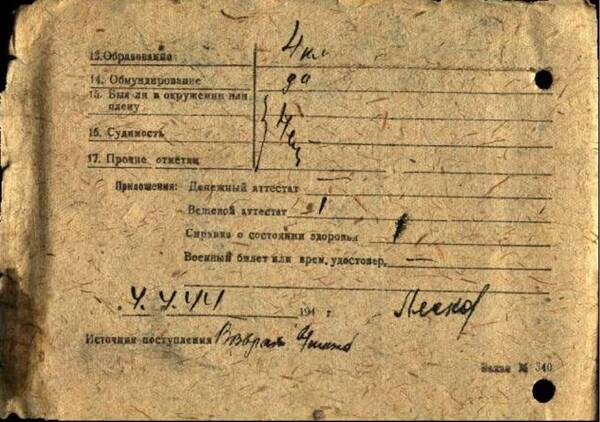 13. Образование 4 кл
14. Обмундирование да
15. Был ли в окружении или
плену
16. Судимость
17. Прочие отметки
Приложения: Денежный аттестат —
Вещевой аттестат 1
Справка о состоянии здоровья 1
Военный билет или врем. удостовер. —
4.4.44 194 г.
Источник поступления
Заказ № 340